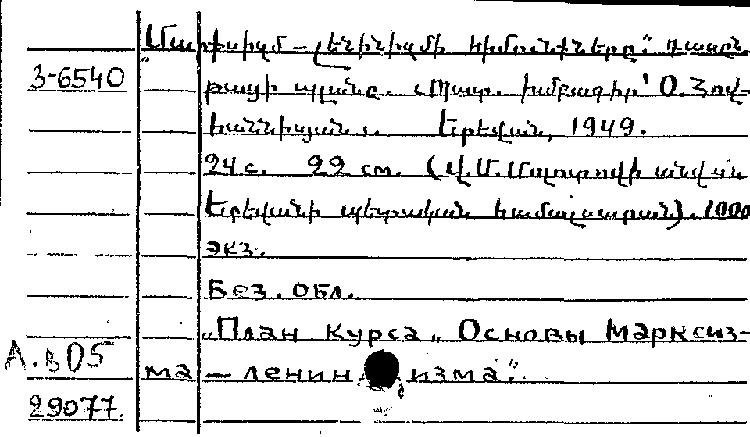 „Մարքսիզմ-լենինիզմի հիմունքները" դասըն-
3-6540
թացի պլանը. Պատ. խմբագիր՝ Օ. Հով-
հաննիսյան. Երեվան, 1949.
24 с. 22 см. (Վ.Մ. Մոլոտովի անվան
Երեվանի պետական համալսարան). 1000
экз.
Без. обл.
„План курса „Основы марксиз-
А.в05
ма-ленинизма".
29077.